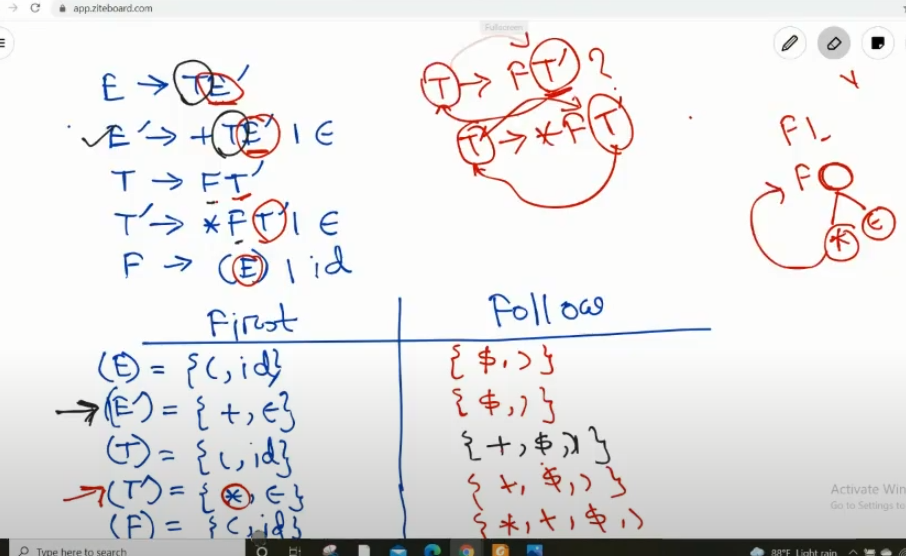 app.ziteboard.com
Fullscreen
E → TE'
E' → + TE' | ∈
T → FT'
T' → *FT' | ∈
F → (E) | id
T → FT' ?
T' → *FT'
F
*
∈
First
Follow
(E) = {(, id}
{ $, ) }
(E') = { +, ∈}
{ $, ) }
(T) = { (, id}
{ +, $, ) }
(T') = { *, ∈}
{ +, $, ) }
(F) = {(, id}
{ *, +, $, )
Activate Win
Go to Settings to
Type here to search
88°F Light rain